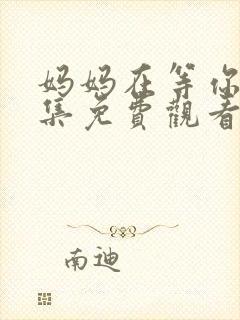 妈妈在等你
集免費觀看
南迪